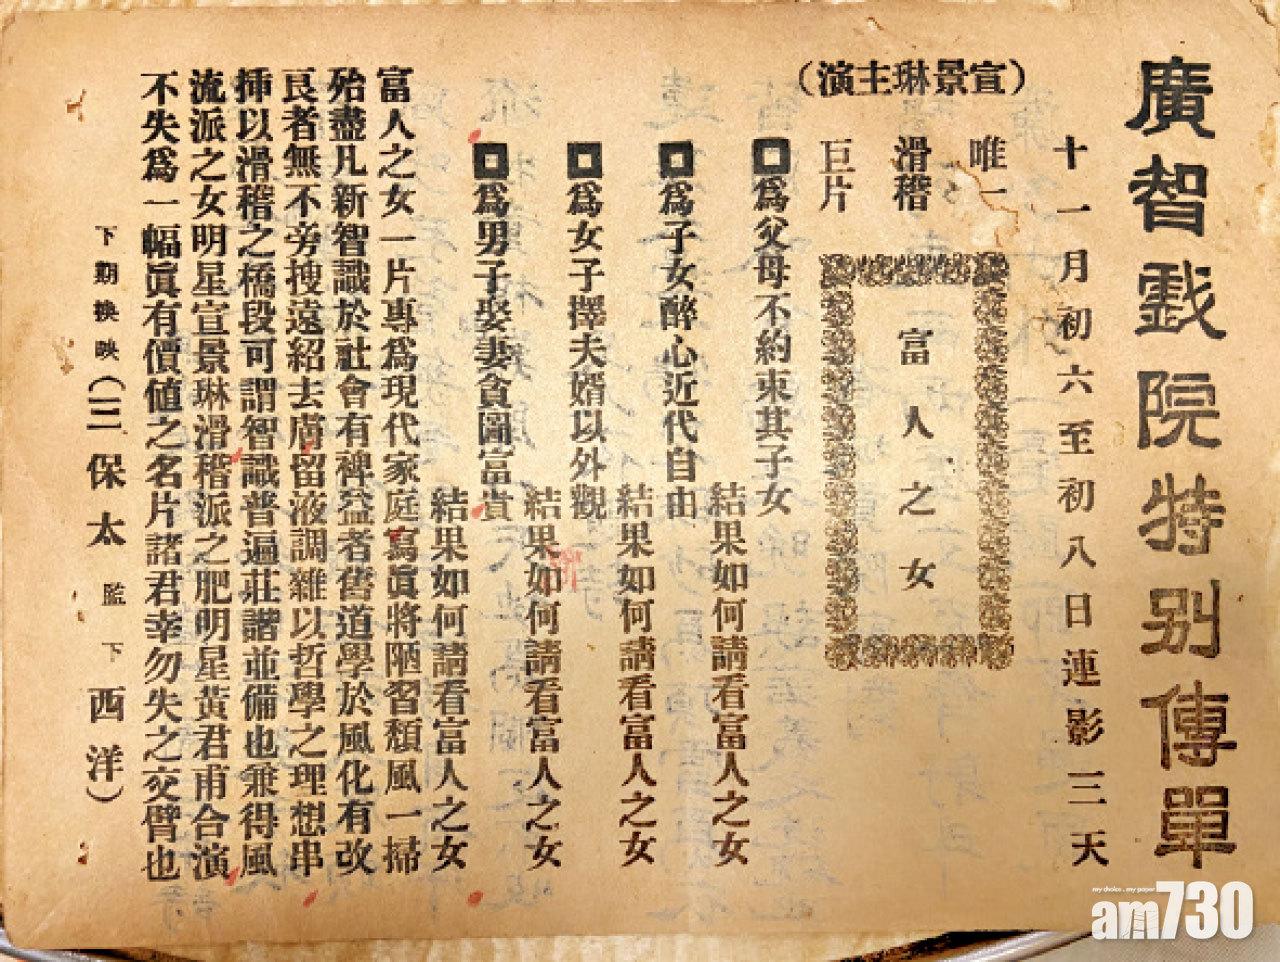 廣智戲院特別傳單
十一月初六至初八日連影三天
唯一
滑稽
巨片
富人之女
（宣景琳主演）
爲父母不約束其子女
結果如何請看富人之女
爲子女醉心近代自由
結果如何請看富人之女
爲女子擇夫婿以外觀
結果如何請看富人之女
爲男子娶妻貪圖富貴
結果如何請看富人之女
富人之女一片專爲現代家庭寫眞將陋習頹風一掃
殆盡凡新智識於社會有裨益者舊道學於風化有改
良者無不旁搜遠紹去膚留液調雜以哲學之理想串
揷以滑稽之橋段可謂智識普遍莊諧並備也兼得風
流派之女明星宣景琳滑稽派之肥明星黃君甫合演
不失爲一幅眞有價値之名片諸君幸勿失之交臂也
下期換映（三保太監下西洋）
my choice . my paper
am730